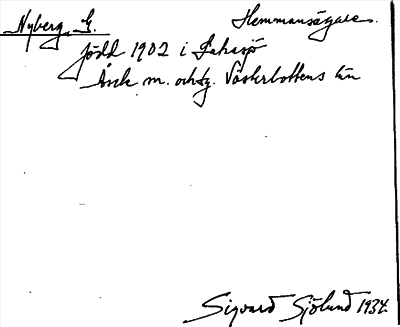 Nyberg, G. Hemmansägare.
född 1902 i Fahasjö
Åsele m. och ty. Västerbottens län
Sigvard Sjölund 1934.